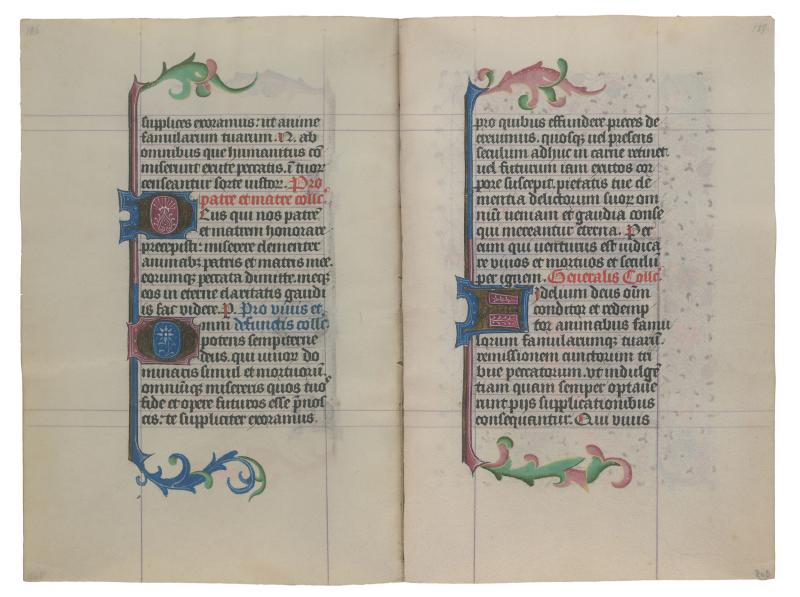 supplices exoramus: ut anime
famularum tuarum. N. ab
omnibus que humanitus cō
miserunt exute peccatis. ī tuor
censeantur sorte iustor. Pro
patre et matre collc.
Deus qui nos patrē
et matrem honorare
precepisti: miserere clementer
animabꝫ patris et matris mee.
eorumqꝫ peccata dimitte. meqꝫ
eos in eterne claritatis gaudi
is fac videre. P. Pro viuis et
Omni defunctis collc.
potens sempiterne
deus. qui viuor do
minaris simul et mortuorū.
omniūqꝫ misereris quos tuos
fide et opere futuros esse p̄nos
cis: te suppliciter exoramus.
pro quibus effundere preces de
creuimus. quosqꝫ vel presens
seculum adhuc in carne retinet.
vel futurum iam exutos cor
pore suscepit. pietatis tue cle
mentia delictorum suor om
niū veniam et gaudia conse
qui mereantur eterna. Per
eum qui venturus est iudica
re viuos et mortuos et seculū
per ignem. Generalis Collc.
Fidelium deus oīm
conditor et redemp
tor animabus famu
lorum famularumqꝫ tuarū.
remissionem cunctorum tri
bue peccatorum. vt indulgē
tiam quam semper optaue
runt pijs supplicationibus
consequantur. Qui viuis